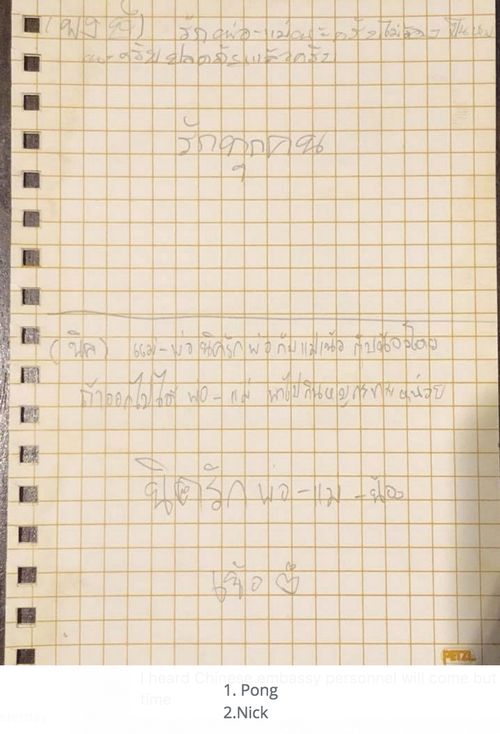 (พงษ์) รักพ่อ-แม่นะครับไม่ต้องเป็นห่วง
นะครับปลอดภัยแล้วครับ
รักทุกคน
(นิค) แม่-พ่อ นิครักพ่อกับแม่เน้อ กับน้องโตย
ถ้าออกไปได้ พ่อ-แม่ พาไปกินหมูกระทะหน่อย
นิครัก พ่อ-แม่-น้อง
เน้อ
PETZL
I heard Chinese embassy personnel will come but
time
1. Pong
2.Nick